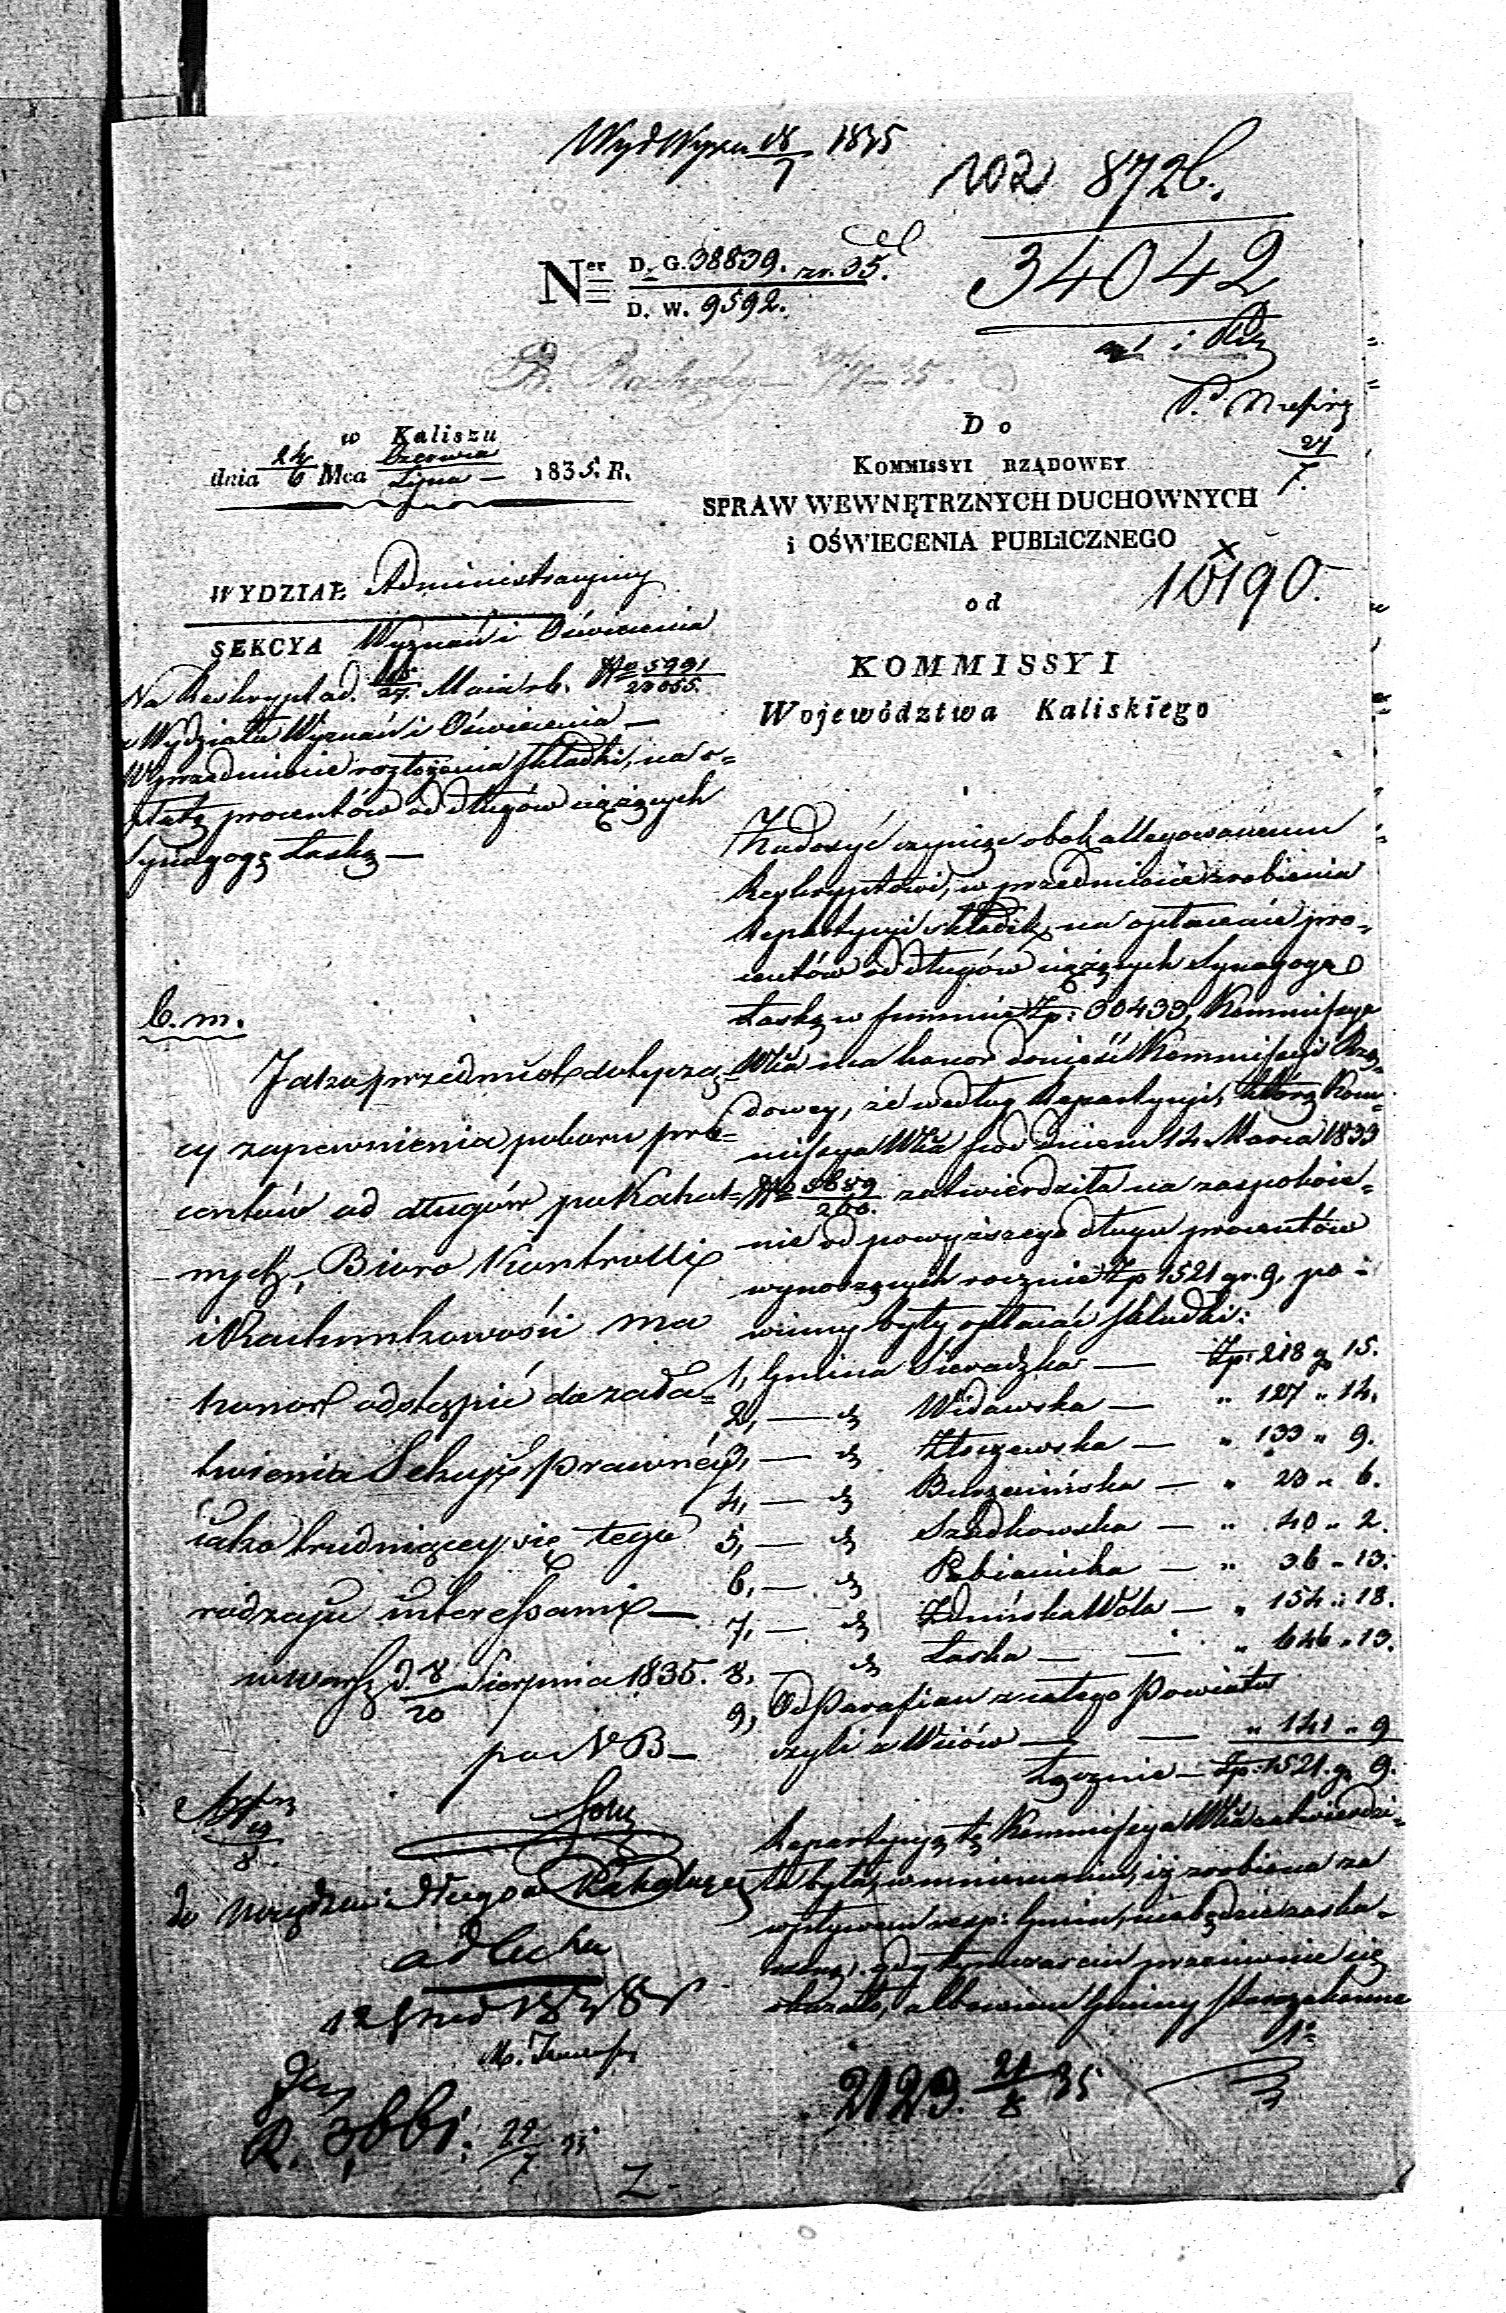 WydWyzn 18/7 1835
102 8726.
34042
Ner D. G. 38839. zr. 35.
D. W. 9592.
w Kaliszu
dnia 24/6 Mca Czerwca/Lipca 1835. R.
Do
KOMMISSYI RZĄDOWEY
27/7.
SPRAW WEWNĘTRZNYCH DUCHOWNYCH
i OŚWIECENIA PUBLICZNEGO
10190.
od
KOMMISSYI
Województwa Kaliskiego
WYDZIAŁ Administracyjny
SEKCYA Wyznań i Oświecenia
Na Reskrypt od. 15/27. Maia rb. No 5991/23055.
z Wydziału Wyznań i Oświecenia —
W przedmiocie rozłożenia składki, na o=
płatę procentów od długów ciążących
Synagogę Łaską —
Zadosyć czyniąc obok allegowanemu
Reskryptowi, w przedmiocie zrobienia
Repartycyi składki, na opłacenie pro-
centów od długów ciążących Synagogę
Łaską w summie Zp: 30433, Kommissya
Wdzka ma honor donieść Kommissyi Rzą-
dowey, że według Repartycyi, którą Kom-
missya Wdzka pod dniem 14 Marca 1833
No 5859/200. zatwierdziła na zaspokoie-
nie od powyższego długu procentów
wynoszących rocznie Zp 1521 gr. 9, po-
winny były opłacać składki:
1, Gmina Sieradzka — Zp: 218 gr 15.
2, — d Widawska — " 127 " 14.
3, — d Złoczewska — " 133 " 9.
4, — d Burzenińska — " 23 " 6.
5, — d Szadkowska — " 40 " 2.
6, — d Pabianicka — " 36 " 13.
7, — d Zduńska Wola — " 154 " 18.
8, — d Łaska — " 646 " 13.
9, Od Parafian z całego Powiatu
czyli z Wsiów — " 141 " 9
Łącznie — Zp: 1521. gr 9.
Repartycyą tę Kommissya Wdzka zatwierdzi-
ła była, w mniemaniu, iż zrobiona za
wpływem resp: Gmin, niebędzie zaska-
rżoną, gdy tymczasem przeciwnie się
okazało, albowiem Gminy
C. m.
Jako przedmiot dotyczą=
cy zapewnienia poboru pro=
centów od długów pokahal=
nych, Biuro Kontrolli
i Rachunkowości ma
honor odstąpić do zała=
twienia Sekcyi prawnéy,
iako trudniącey się tego
rodzaju interessami —
w Warsz d. 8/20 Sierpnia 1835.
po NB —
2123. 21/8 35
R. 3661. 29/7 35